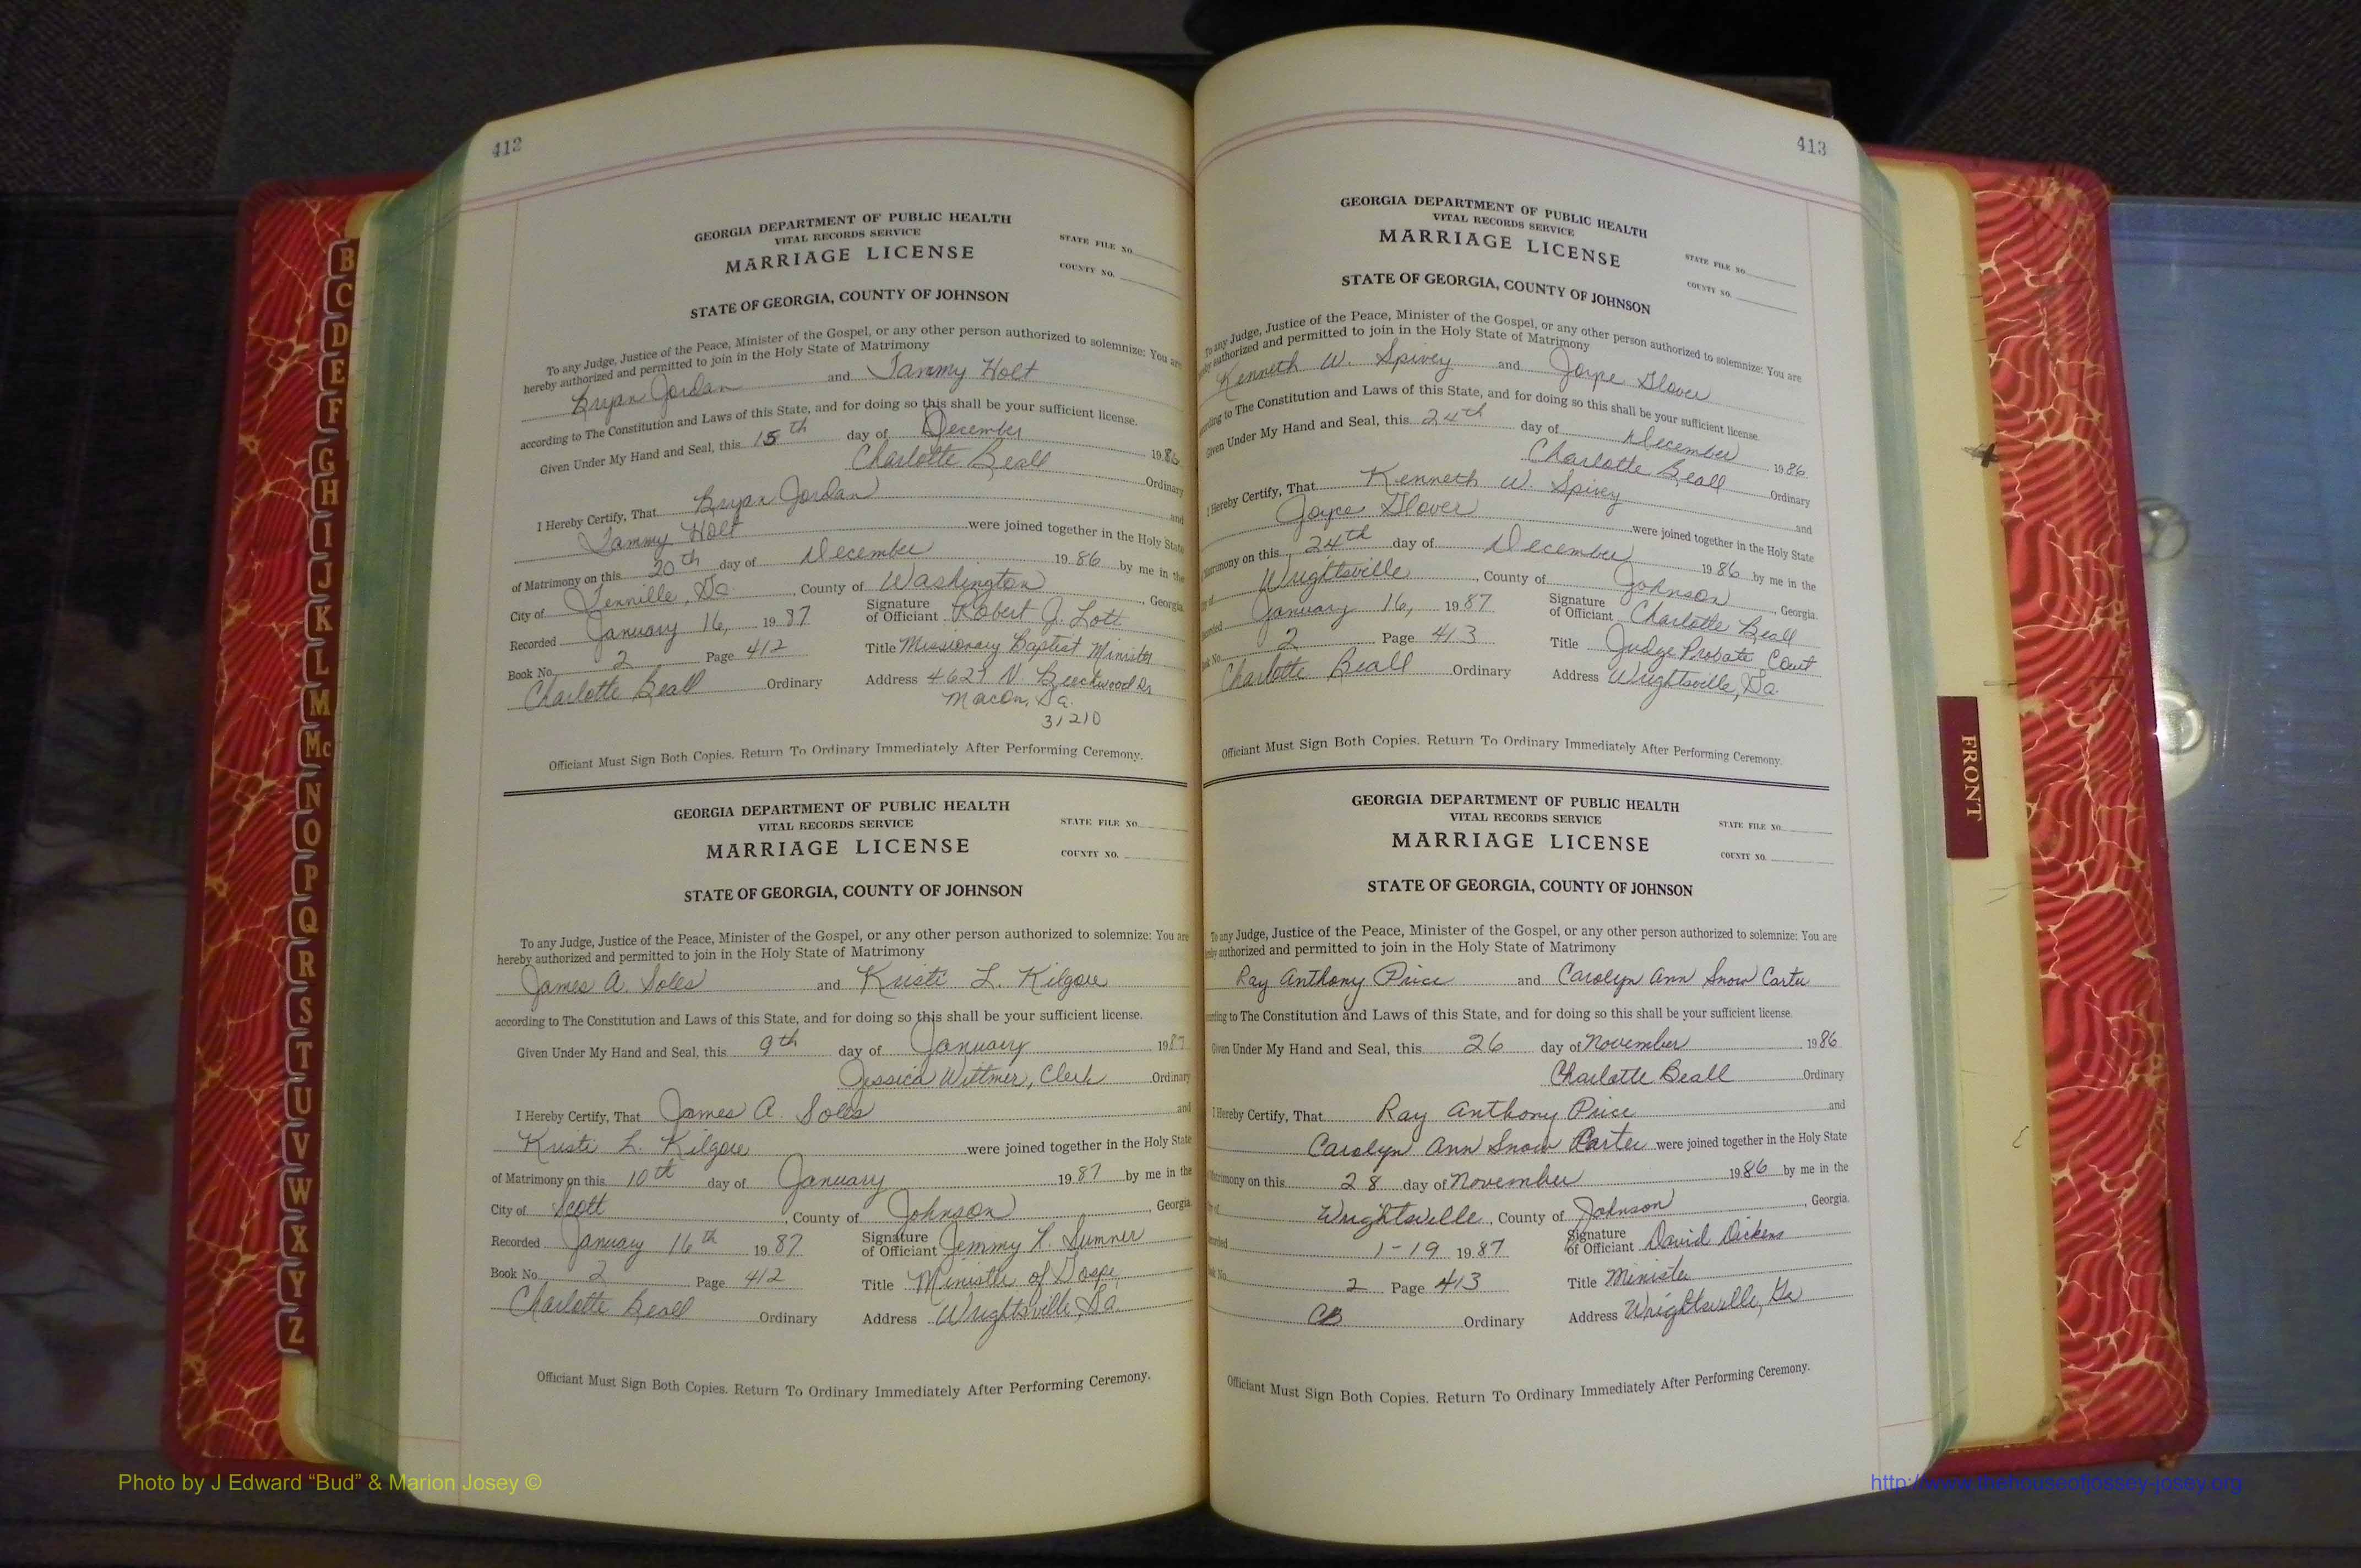 412
GEORGIA DEPARTMENT OF PUBLIC HEALTH
VITAL RECORDS SERVICE
MARRIAGE LICENSE
STATE FILE NO.
COUNTY NO.
STATE OF GEORGIA, COUNTY OF JOHNSON
To any Judge, Justice of the Peace, Minister of the Gospel, or any other person authorized to solemnize: You are
hereby authorized and permitted to join in the Holy State of Matrimony
Bryan Jordan and Tammy Holt
according to The Constitution and Laws of this State, and for doing so this shall be your sufficient license.
Given Under My Hand and Seal, this 15th day of December 1986
Charlotte Beall Ordinary
I Hereby Certify, That Bryan Jordan and
Tammy Holt were joined together in the Holy State
of Matrimony on this 20th day of December 1986 by me in the
City of Tennille, Ga. , County of Washington , Georgia
Recorded January 16, 1987 Signature of Officient Robert J. Lott
Book No. 2 Page 412 Title Missionary Baptist Minister
Charlotte Beall Ordinary Address 4629 N. Beechwood Dr
Macon, Ga.
31210
Officiant Must Sign Both Copies. Return To Ordinary Immediately After Performing Ceremony.
GEORGIA DEPARTMENT OF PUBLIC HEALTH
VITAL RECORDS SERVICE
MARRIAGE LICENSE
STATE FILE NO.
COUNTY NO.
STATE OF GEORGIA, COUNTY OF JOHNSON
To any Judge, Justice of the Peace, Minister of the Gospel, or any other person authorized to solemnize: You are
hereby authorized and permitted to join in the Holy State of Matrimony
James A. Soles and Kristi L. Kilgore
according to The Constitution and Laws of this State, and for doing so this shall be your sufficient license.
Given Under My Hand and Seal, this 9th day of January 1987
Jessica Wittmer, Clerk Ordinary
I Hereby Certify, That James A. Soles and
Kristi L. Kilgore were joined together in the Holy State
of Matrimony on this 10th day of January 1987 by me in the
City of Scott , County of Johnson , Georgia
Recorded January 16th 1987 Signature of Officiant Jemmy R. Sumner
Book No. 2 Page 412 Title Minister of Gospe
Charlotte Beall Ordinary Address Wrightsville, Ga.
Officiant Must Sign Both Copies. Return To Ordinary Immediately After Performing Ceremony.
413
GEORGIA DEPARTMENT OF PUBLIC HEALTH
VITAL RECORDS SERVICE
MARRIAGE LICENSE
STATE FILE NO.
COUNTY NO.
STATE OF GEORGIA, COUNTY OF JOHNSON
To any Judge, Justice of the Peace, Minister of the Gospel, or any other person authorized to solemnize: You are
authorized and permitted to join in the Holy State of Matrimony
Kenneth W. Spivey and Joyce Glover
to The Constitution and Laws of this State, and for doing so this shall be your sufficient license.
Given Under My Hand and Seal, this 24th day of December 1986
Charlotte Beall Ordinary
I Hereby Certify, That Kenneth W. Spivey and
Joyce Glover were joined together in the Holy State
Matrimony on this 24th day of December 1986 by me in the
Wrightsville , County of Johnson , Georgia.
January 16, 1987 Signature of Officiant Charlotte Beall
2 Page 413 Title Judge Probate Court
Charlotte Beall Ordinary Address Wrightsville, Ga.
Officiant Must Sign Both Copies. Return To Ordinary Immediately After Performing Ceremony.
GEORGIA DEPARTMENT OF PUBLIC HEALTH
VITAL RECORDS SERVICE
MARRIAGE LICENSE
STATE FILE NO.
COUNTY NO.
STATE OF GEORGIA, COUNTY OF JOHNSON
To any Judge, Justice of the Peace, Minister of the Gospel, or any other person authorized to solemnize: You are
authorized and permitted to join in the Holy State of Matrimony
Ray Anthony Price and Carolyn Ann Snow Carter
to The Constitution and Laws of this State, and for doing so this shall be your sufficient license.
Given Under My Hand and Seal, this 26 day of November 1986
Charlotte Beall Ordinary
I Hereby Certify, That Ray Anthony Price and
Carolyn Ann Snow Carter were joined together in the Holy State
on this 28 day of November 1986 by me in the
Wrightsville , County of Johnson , Georgia.
1-19 1987 Signature of Officiant David Dickens
2 Page 413 Title Minister
CB Ordinary Address Wrightsville, Ga
Officiant Must Sign Both Copies. Return To Ordinary Immediately After Performing Ceremony.
B
C
D
E
F
G
H
I
J
K
L
M
Mc
N
O
P
Q
R
S
T
U
V
W
X
Y
Z
FRONT
Photo by J Edward “Bud” & Marion Josey ©
http://www.thehouseofjossey-josey.org